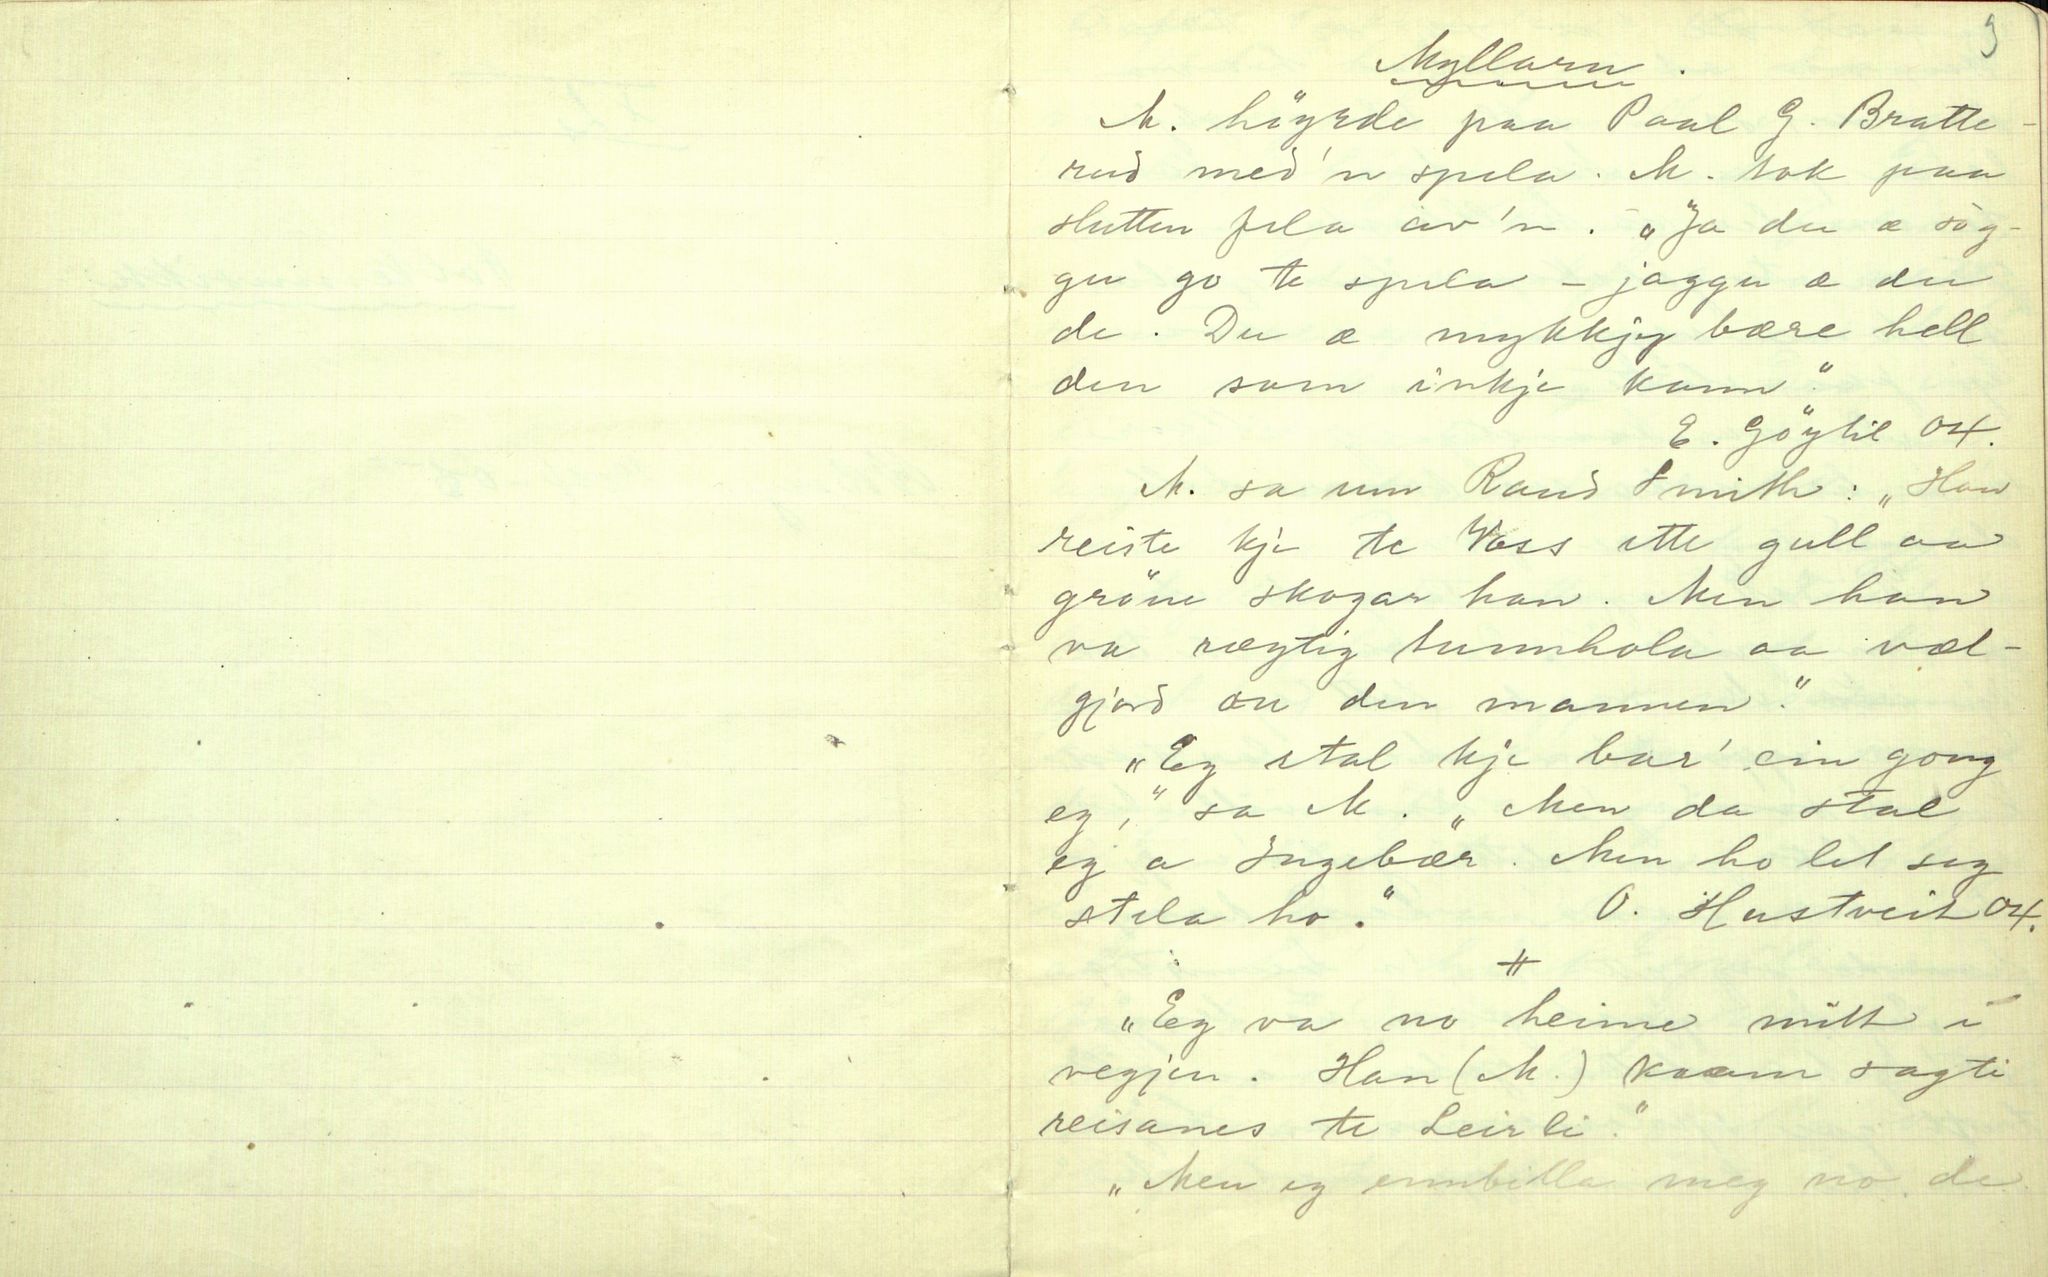 9
Myllarn.
M. höyrde paa Paal G. Bratte-
rud med'n spela. M. tok paa
slutten fela av'n. „Ja du æ sög-
gu go te spela – jaggu æ du
de. Du æ mykkjy bære hell
den som inkje kann."
E. Göytil 04.
M. sa um Knud Smith: „Han
reiste kje te Voss ette gull aa
gröne skogar han. Men han
va rægtig tunnhola aa væl-
gjord au den mannen."
„Eg stal kje bar' ein gong
eg," sa M. „Men da stal
eg a Ingebær. Men ho let seg
stela ho." O. Hustveit 04.
„Eg va no heime mitt i
vegjen. Han (M.) kaam sagti
reisanes te Leirli."
„Men eg ennbilla meg no de